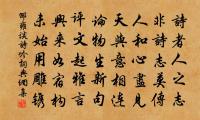 詩者人之志
非詩志莫傳
人和心盡見
天與意相連
論物生新句
評文起雅言
興來如宿構
未始用雕鐫
邵雍談詩吟詞典網集